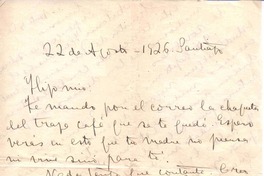 22 de Agosto - 1926 Santiago
Hijo mio:
Te mando por el correo la chaqueta
del traje café que se te quedó. Espero
verás en esto que tu madre no piensa
ni vive sino para ti.
Nada tengo que contarte. Creo